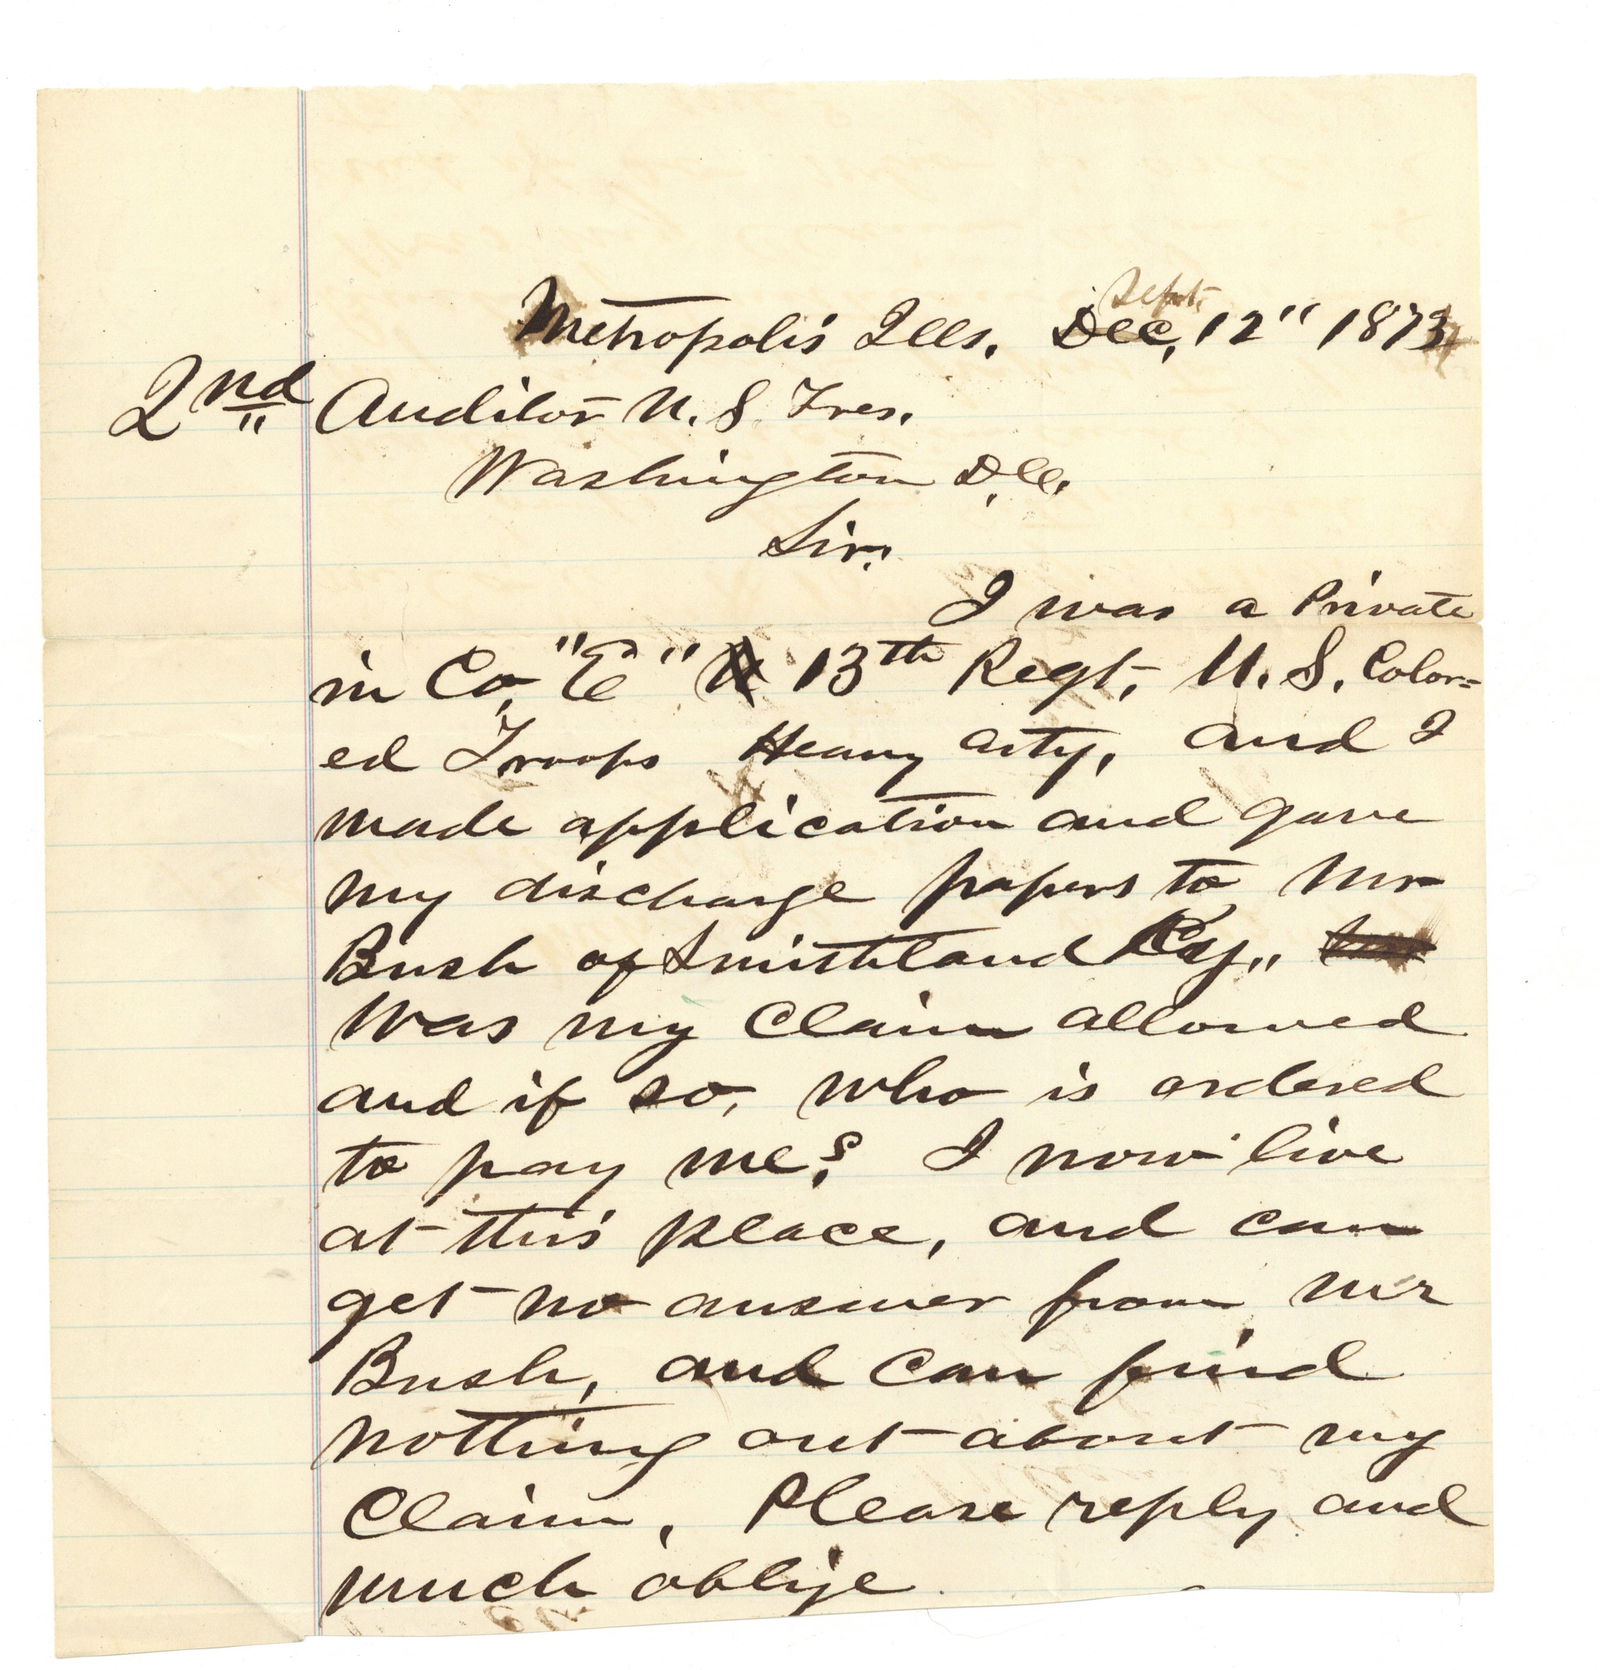 Sept.
Metropolis Ills. Dec, 12" 1873
2nd Auditor U. S. Tres.
Washington D.C.
Sir;
I was a Private
in Co, "E" 13th Regt, U. S. Color=
ed Troops Heavy Arty, and I
made application and gave
my discharge papers to Mr
Bush of Smithland Ky.,
Was my Claim allowed
and if so, who is ordered
to pay me? I now live
at this place, and can
get no answer from Mr
Bush, and can find
nothing out about my
Claim, Please reply and
much oblige